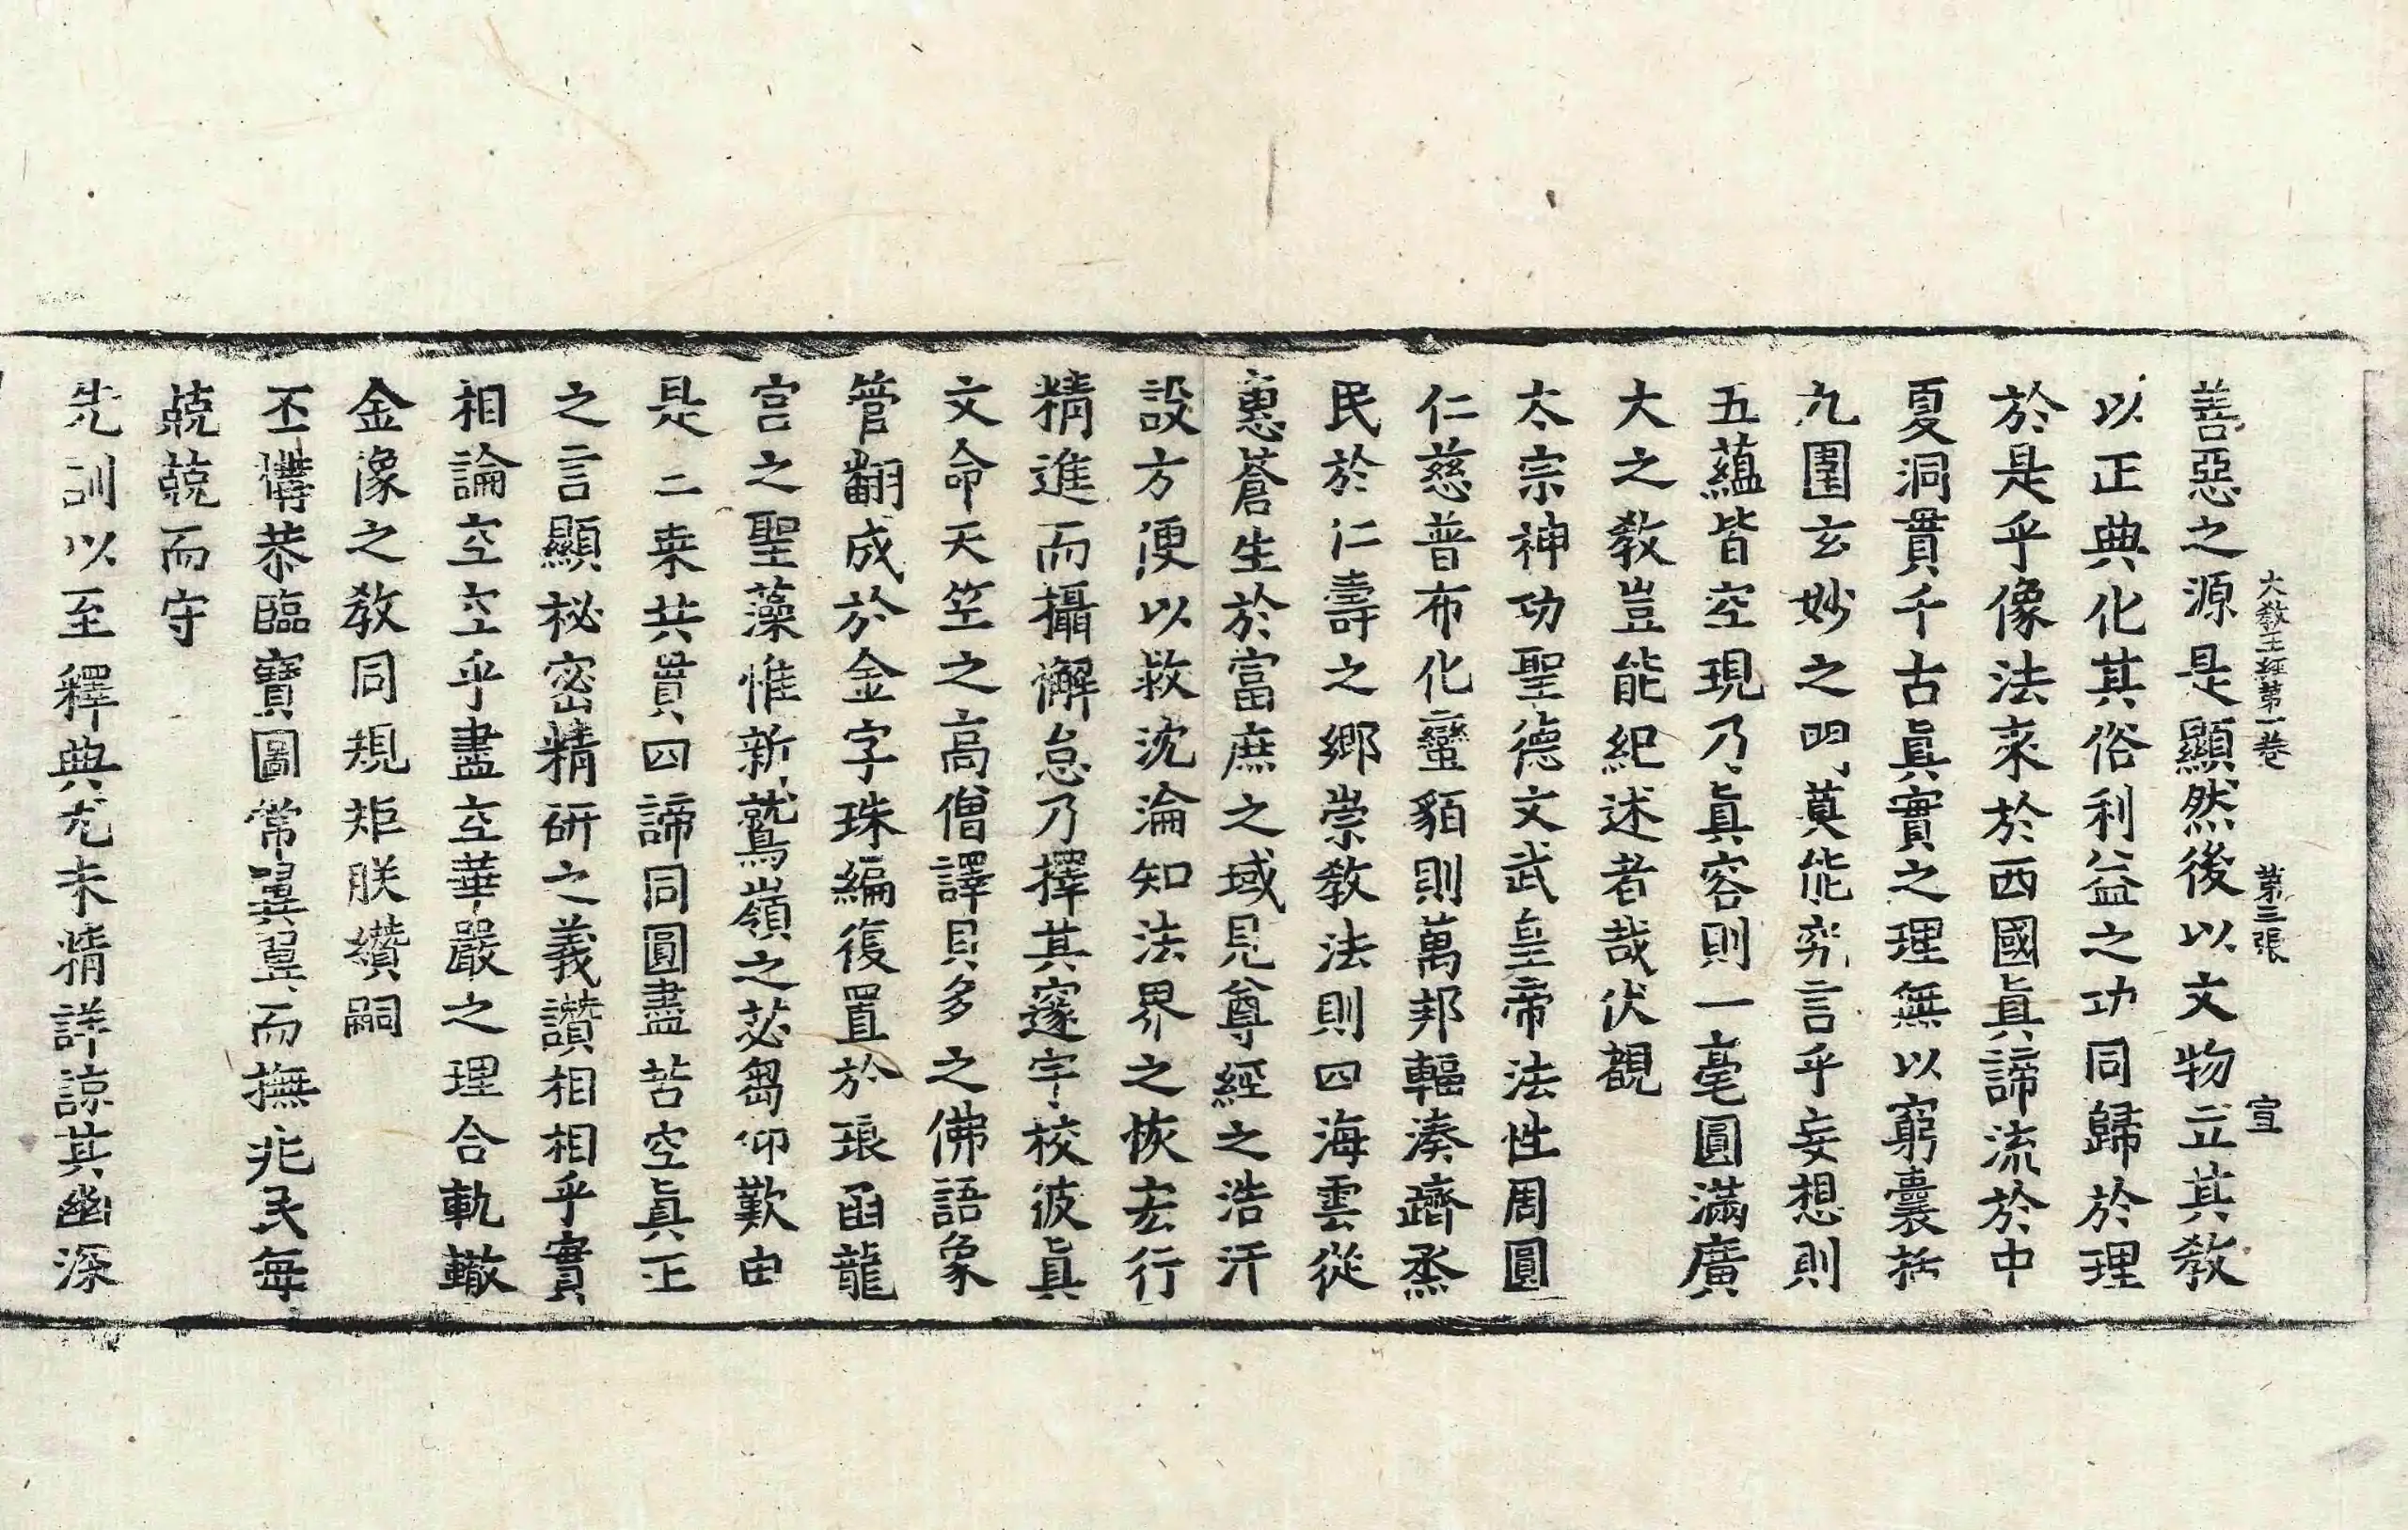 大教王經第一卷　第三張　宣
善惡之源是顯然後以文物立其教
以正典化其俗利益之功同歸於理
於是乎像法來於西國眞諦流於中
夏洞貫千古眞實之理無以窮囊括
九圍玄妙之門莫能究言乎妄想則
五蘊皆空現乃眞容則一毫圓滿廣
大之教豈能紀述者哉伏覩
太宗神功聖德文武皇帝法性周圓
仁慈普布化蠻貊則萬邦輻湊躋烝
民於仁壽之鄉崇教法則四海雲從
惠蒼生於富庶之域見尊經之浩汗
設方便以救沈淪知法界之恢宏行
精進而攝懈怠乃擇其邃宇校彼眞
文命天竺之高僧譯貝多之佛語象
管翻成於金字珠編復置於琅函龍
宮之聖藻惟新鷲嶺之苾芻仰歎由
是二乘共貫四諦同圓盡苦空眞正
之言顯祕密精研之義讚相相乎實
相論空空乎盡空華嚴之理合軌轍
金像之教同規矩朕纘嗣
丕構恭臨寶圖常翼翼而撫兆民每
兢兢而守
先訓以至釋典尤未精詳諒其幽深